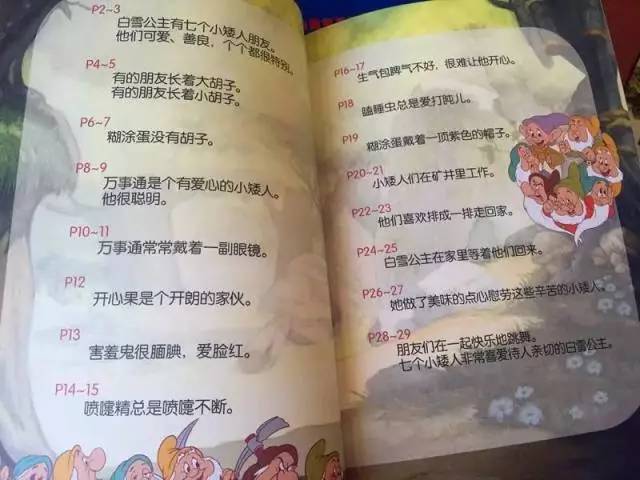 P2~3
白雪公主有七个小矮人朋友。
他们可爱、善良，个个都很特别。
P4~5
有的朋友长着大胡子。
有的朋友长着小胡子。
P6~7
糊涂蛋没有胡子。
P8~9
万事通是个有爱心的小矮人。
他很聪明。
P10~11
万事通常常戴着一副眼镜。
P12
开心果是个开朗的家伙。
P13
害羞鬼很腼腆，爱脸红。
P14~15
喷嚏精总是喷嚏不断。
P16~17
生气包脾气不好，很难让他开心。
P18
瞌睡虫总是爱打盹儿。
P19
糊涂蛋戴着一顶紫色的帽子。
P20~21
小矮人们在矿井里工作。
P22~23
他们喜欢排成一排走回家。
P24~25
白雪公主在家里等着他们回来。
P26~27
她做了美味的点心慰劳这些辛苦的小矮人。
P28~29
朋友们在一起快乐地跳舞。
七个小矮人非常喜爱待人亲切的白雪公主。